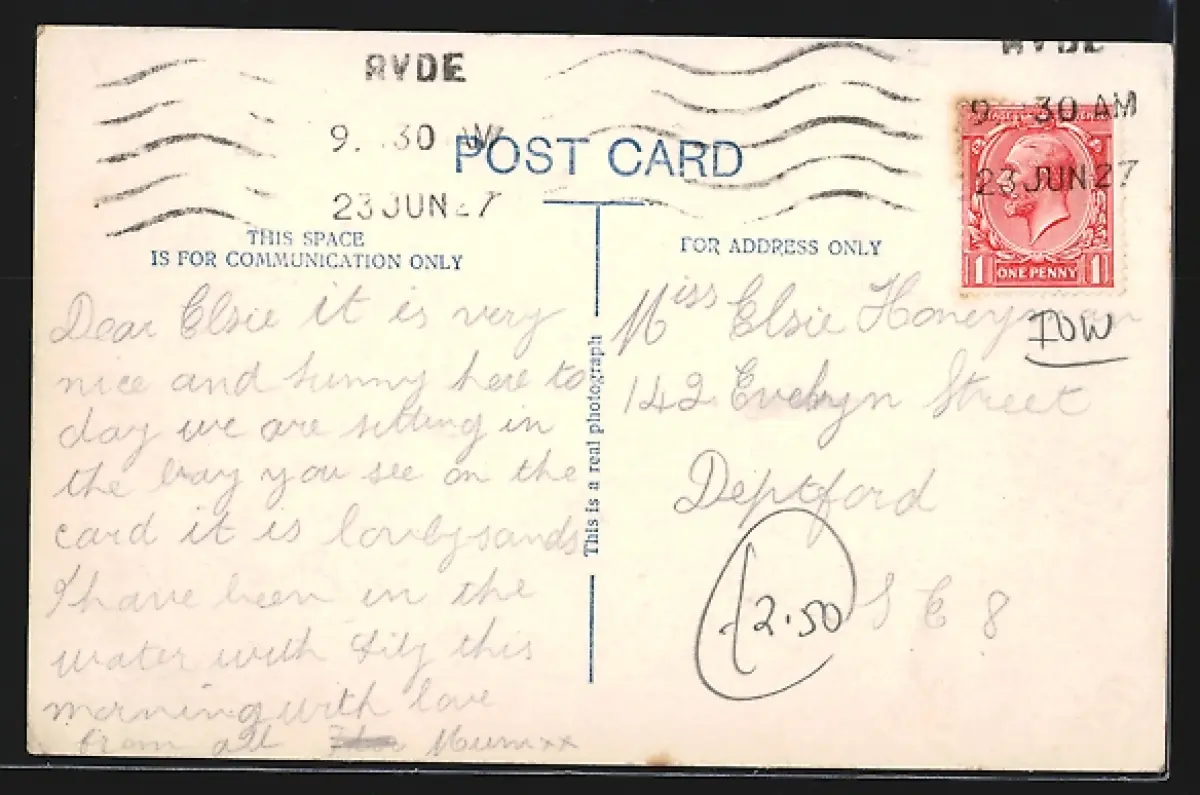 RYDE
9. 30 AM
23 JUN 27
RYDE
9. 30 AM
23 JUN 27
POST CARD
THIS SPACE
IS FOR COMMUNICATION ONLY
FOR ADDRESS ONLY
1 ONE PENNY 1
Dear Elsie it is very
nice and sunny here to
day we are sitting in
the bay you see on the
card it is lovely sands
I have been in the
water with Lily this
morning with love
from all Mum xx
This is a real photograph
Miss Elsie Honeyman
IOW
142 Evelyn Street
Deptford
£2.50
S E 8